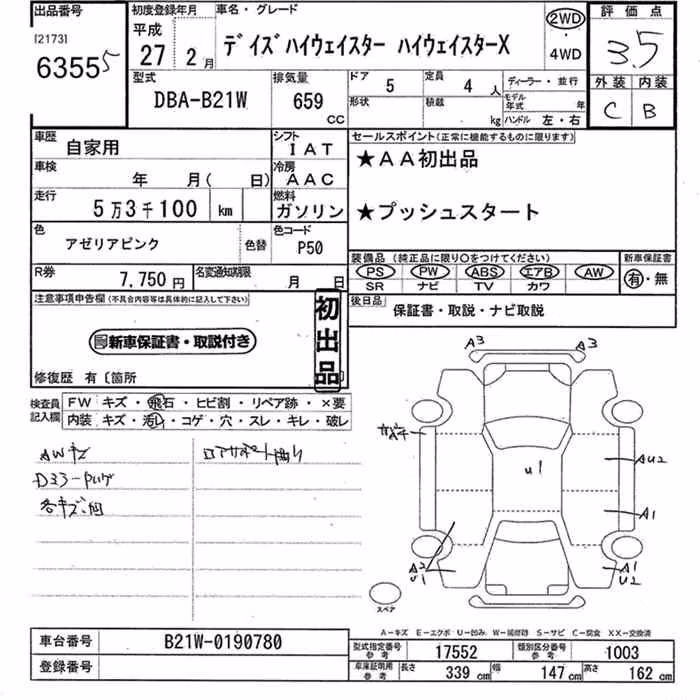 出品番号 初度登録年月 車名・グレード 2WD 評価点
[2173] 平成
63555 27年 2月 デイズハイウェイスター ハイウェイスターX ・ 4WD 3.5
型式 排気量 ドア 5 定員 4人 ディーラー・並行 外装 内装
DBA-B21W 659cc 形状 積載 kg モデル年式 年 ハンドル 左・右 C B
車歴 自家用 シフト IAT セールスポイント(正常に機能するものに限ります)
車検 年 月( 日) 冷房 AAC ★AA初出品
走行 5万3千100 km 燃料 ガソリン ★プッシュスタート
色 アゼリアピンク 色替 色コード P50
装備品(純正品に限り○をつけてください) 新車保証書
PS PW ABS エアB AW 有・無
SR ナビ TV カワ
R券 7,750円 名変通知期限 月 日
後日品 保証書・取説・ナビ取説
注意事項申告欄(不具合内容等は具体的に記入して下さい)
初出品
新車保証書・取説付き
修復歴 有〔箇所
検査員記入欄 FW キズ・飛石・ヒビ割・リペア跡・×要
内装 キズ・汚れ・コゲ・穴・スレ・キレ・破レ
AWキズ
各キズ凹
A3 A3
u1
AU2
A1
A2 U1
A1 U2
スペア
A-キズ E-エクボ U-凹み W-補修跡 S-サビ C-腐食 XX-交換済
車台番号 B21W-0190780 型式指定番号参考 17552 類別区分番号参考 1003
登録番号 車庫証明用参考 長さ 339cm 幅 147cm 高さ 162cm